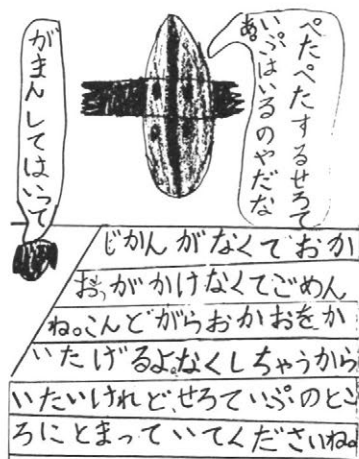 ぺたぺたするせろて
いぷはいるのやだな
あ。
がまんしてはいって
じかんがなくておか
おがかけなくてごめん
ね。こんどがらおかおをか
いたげるよ。なくしちゃうから
いたいけれど、せろていぷのとこ
ろにとまっていてくださいね。